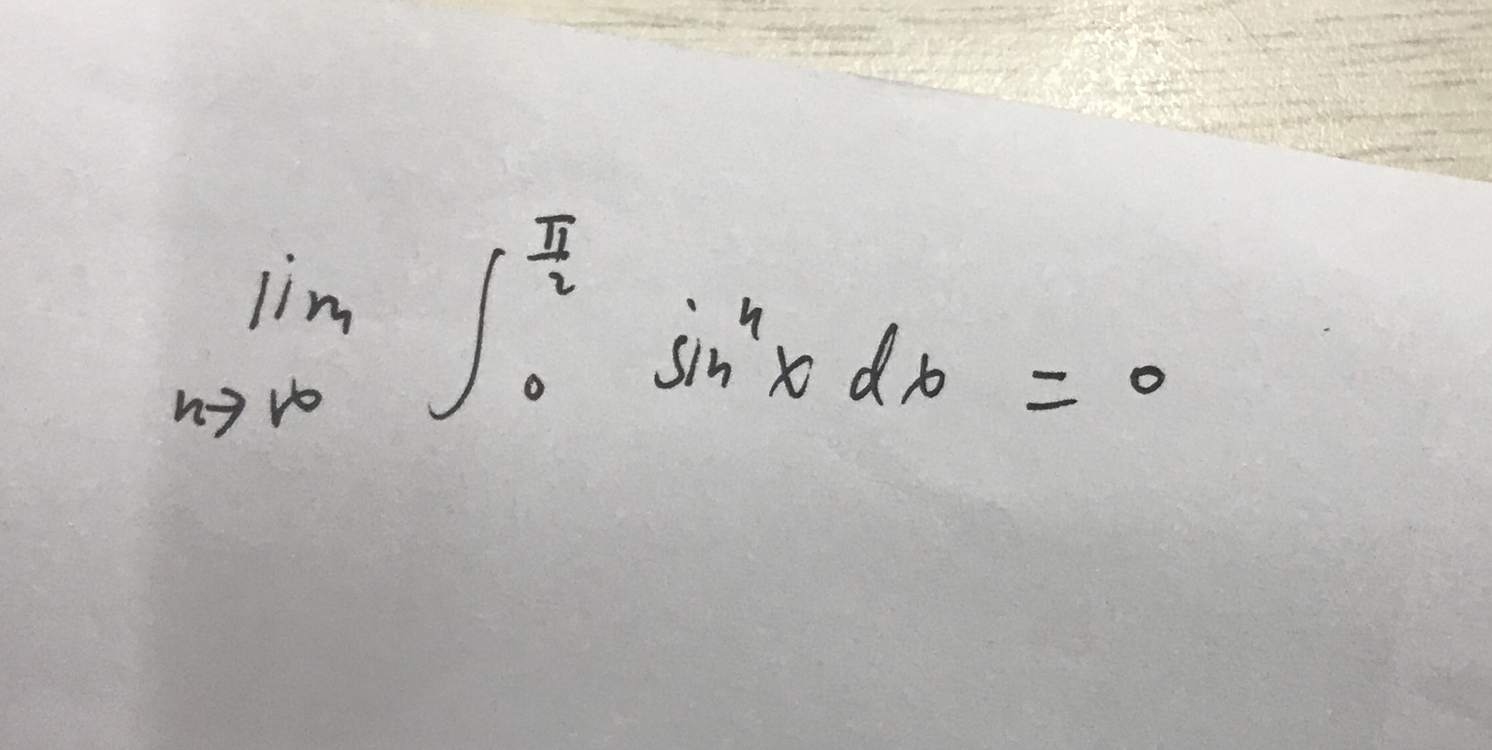 lim_{n→∞} ∫_0^{π/2} sin^n x dx = 0